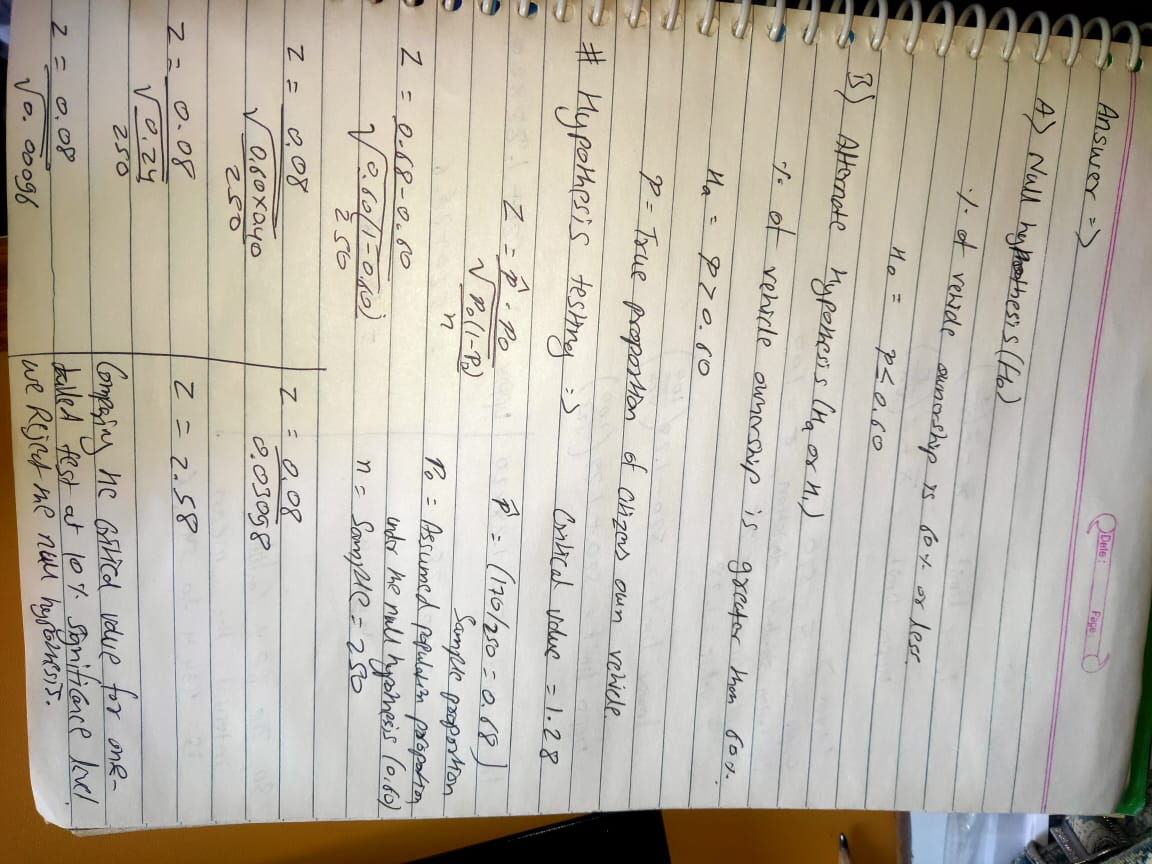 Date: Page:
Answer =>
A) Null hypothesis (H0)
% of vehicle ownership is 60% or less.
H0 = P ≤ 0.60
B) Alternate Hypothesis (Ha or H1)
% of vehicle ownership is greater than 60%.
Ha = P > 0.60
P = True proportion of citizens own vehicle.
# Hypothesis testing => Critical value = 1.28
Z = p̂ - P0 / √(P0(1-P0) / n)
p̂ = (170/20 = 0.68)
Sample proportion
P0 = Assumed population proportion
under the null hypothesis (0.60)
n = Sample = 250
Z = 0.68 - 0.60 / √(0.60(1-0.60) / 250)
Z = 0.08 / √(0.60x0.40 / 250)
Z = 0.08 / √(0.24 / 250)
Z = 0.08 / √0.00096
Z = 0.08 / 0.03098
Z = 2.58
Comparing the critical value for one-
tailed test at 10% significance level.
we Reject the null hypothesis.